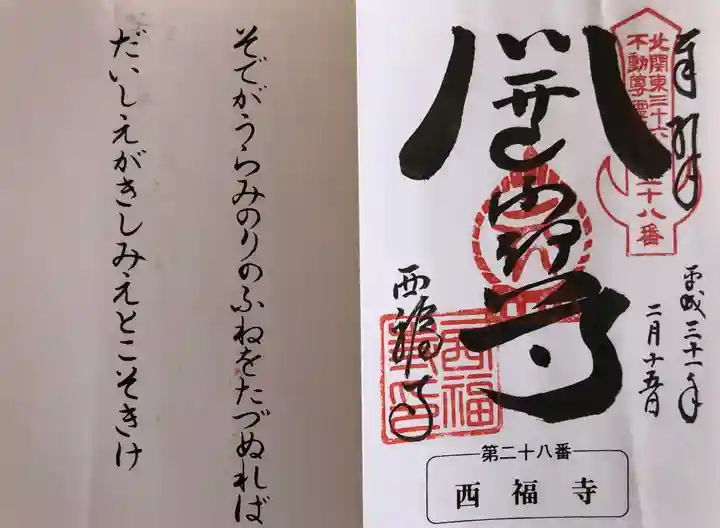 奉拝
北関東三十六
不動尊霊
二十八番
平成三十一年
二月十五日
尊
西福寺
西福
第二十八番
西福寺
そでがうらみのりのふねをたづぬれば
だいしえがきしみえとこそきけ